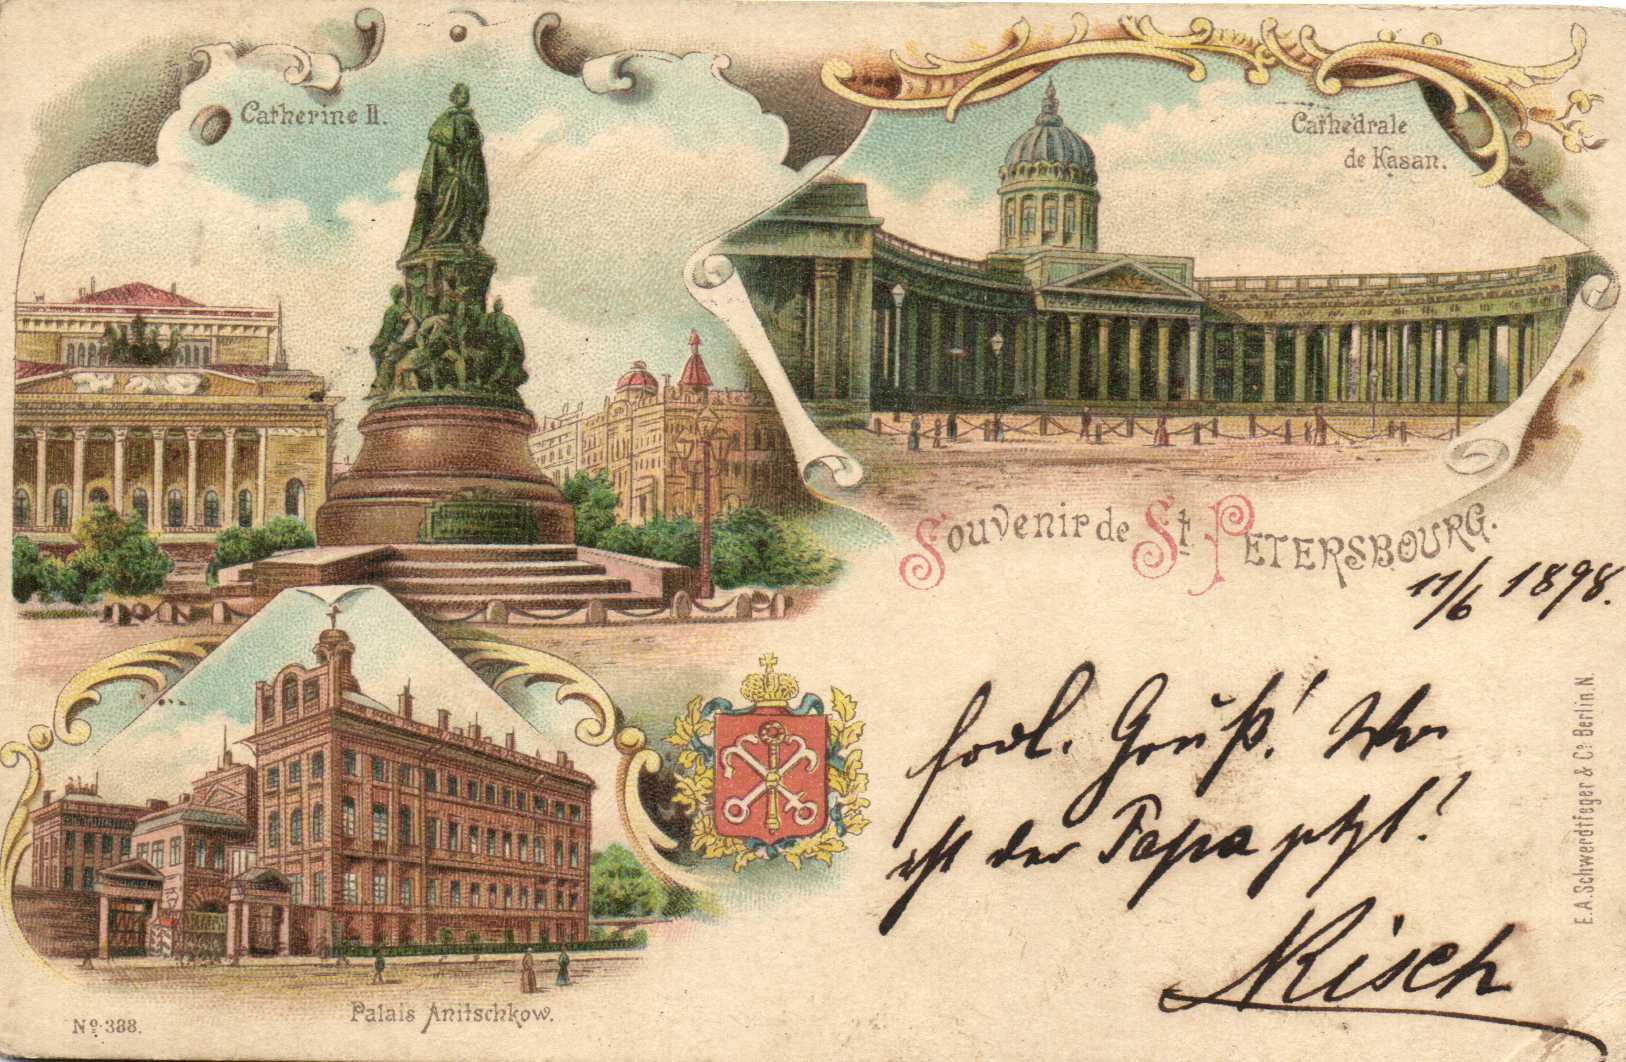 Catherine II.
Cathedrale
de Kasan.
Souvenir de St. Petersbourg.
11/6 1898.
frdl. Gruß! Wo
ist der Papa jetzt?
Risch
E.A.Schwerdtfeger & Co. Berlin N.
Palais Anitschkow.
No. 388.